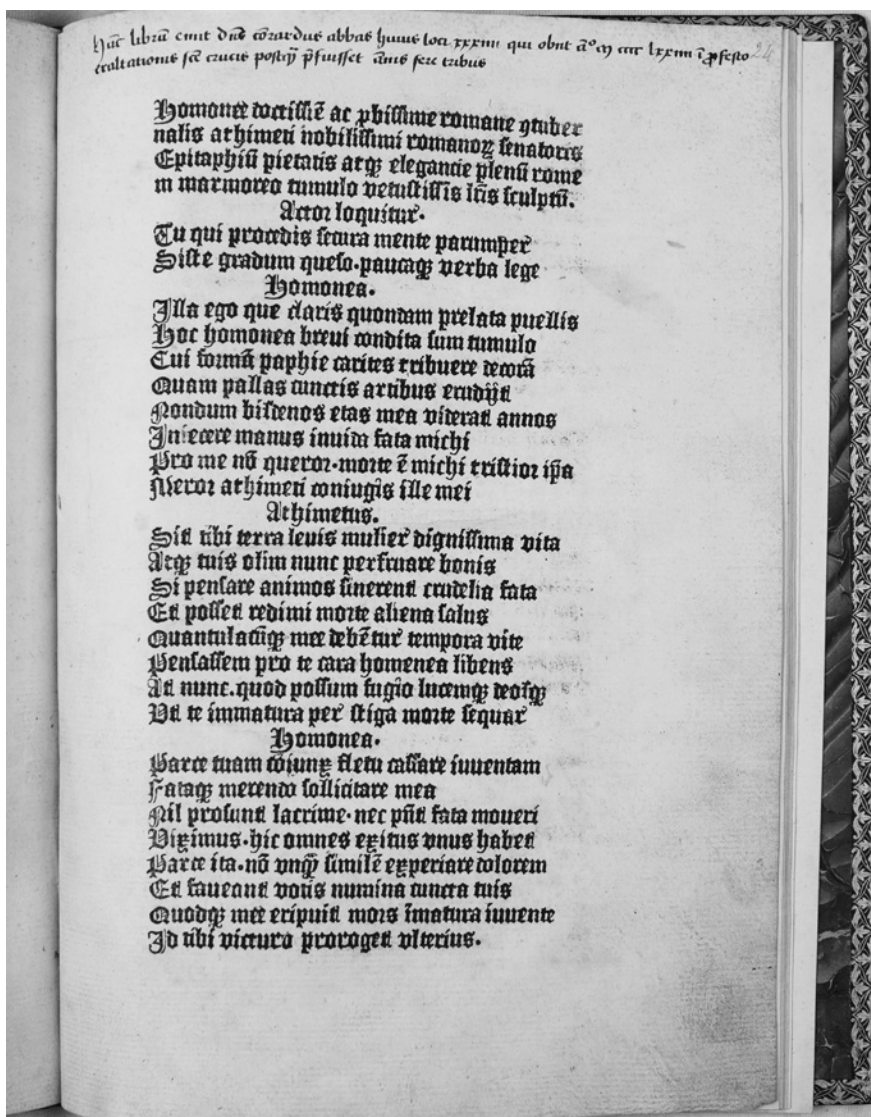 Hūc librū emit dn̄s cōrardus abbas huius loci xxxiiii qui obiit āo m cccc lxxiiii ī ꝓfesto 24
exaltationis scē crucis postqȝ p̄fuisset annis fere tribus
Homonee doctissīe ac ꝓbissime romane ꝯtuber
nalis athimeti nobilissimi romanoꝝ senatoris
Epitaphiū pietatis atqȝ elegancie plenū rome
in marmoreo tumulo vetustissīs lr̄is sculptū.
Actor loquitur.
Tu qui procedis secura mente parumꝑ
Siste gradum queso. paucaqȝ verba lege
Homonea.
Illa ego que claris quondam prelata puellis
Hoc homonea breui condita sum tumulo
Cui formā paphie carites tribuere decorā
Quam pallas cunctis artibus erudijt
Nondum bisdenos etas mea viderat annos
Iniecere manus inuida fata michi
Pro me nō queror. morte ē michi tristior ip̄a
Meror athimeti coniugis ille mei
Athimetus.
Sit tibi terra leuis mulier dignissima vita
Atqȝ tuis olim nunc perfruare bonis
Si pensare animos sinerent crudelia fata
Et posset redimi morte aliena salus
Quantulacūqȝ mee debēt̄ur tempora vite
Pensassem pro te cara homenea libens
At nunc. quod possum fugio lucemqȝ deosqȝ
Vt te immatura per stiga morte sequar
Homonea.
Parce tuam cōiunx fletu cassare iuuentam
Fataqȝ merendo sollicitare mea
Nil prosunt lacrime. nec pn̄t fata moueri
Viximus. hic omnes exitus vnus habet
Parce ita. nō vnqȝ similē experiare dolorem
Et faueant votis numina cuncta tuis
Quodqȝ mee eripuit mors īmatura iuuente
Id tibi victuro proroget vlterius.